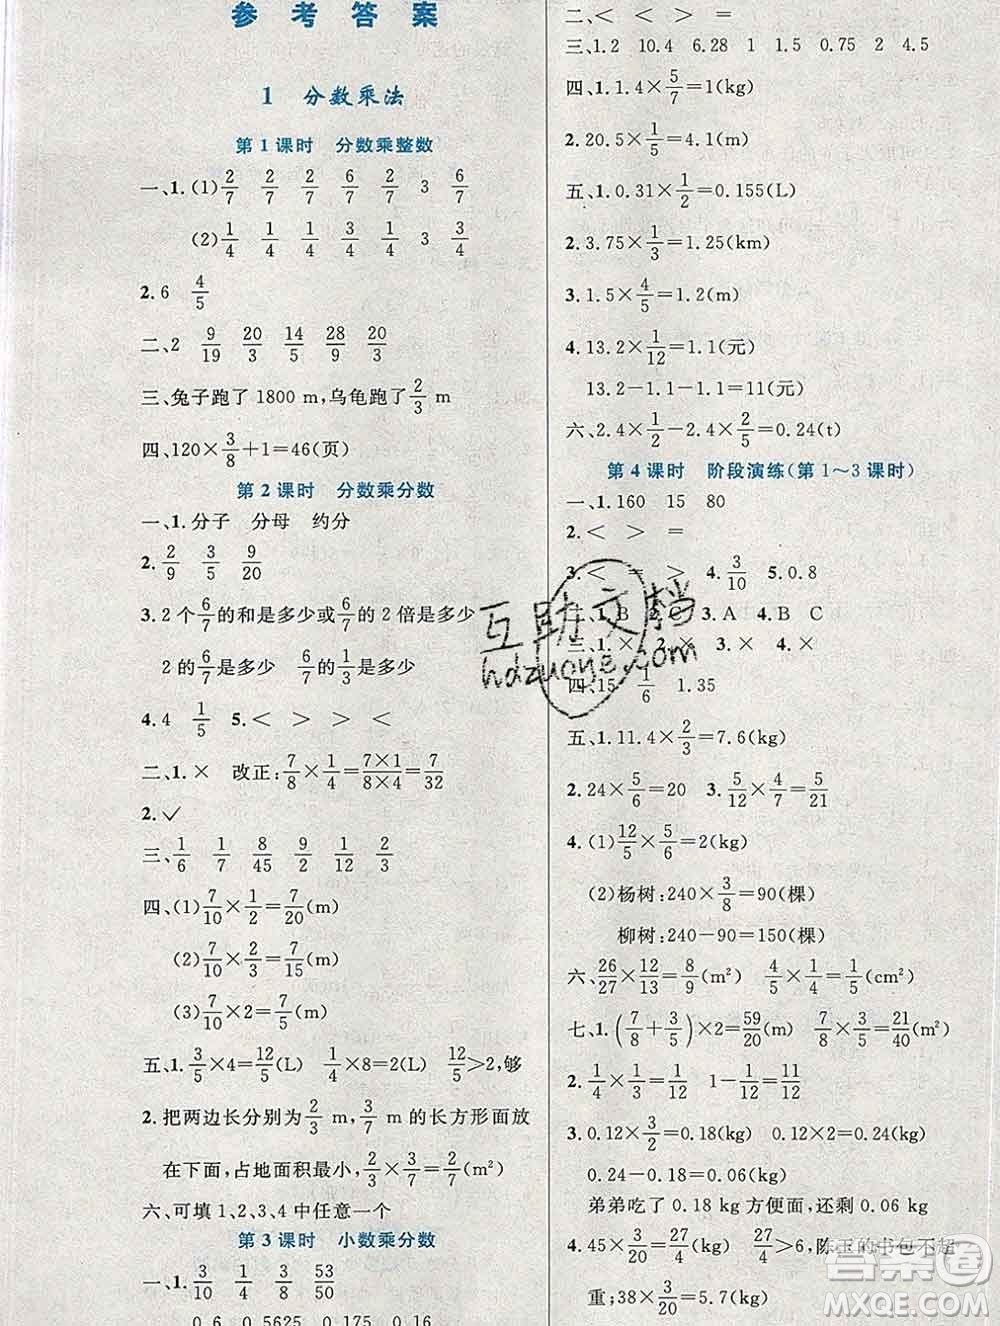 参考答案
1 分数乘法
第1课时 分数乘整数
一、1.(1) 2/7 2/7 6/7 2/7 3 6/7
(2) 1/4 1/4 3/4 1/4 3 3/4
2. 6 4/5
二、2 9/19 20/3 14/5 28/9 20/3
三、兔子跑了 1800 m,乌龟跑了 2/3 m
四、120×3/8+1=46(页)
第2课时 分数乘分数
一、1.分子 分母 约分
2. 2/9 3/5 9/20
3. 2个6/7的和是多少或6/7的2倍是多少
2的6/7是多少 6/7的1/3是多少
4. 4 1/5 5. < > > <
二、1. × 改正:7/8×1/4=7×1/8×4=7/32
2. ✓
三、1/6 1/7 8/45 9/2 1/12 2/3
四、(1) 7/10×1/2=7/20(m)
(2) 7/10×2/3=7/15(m)
(3) 7/10×2=7/5(m)
五、1. 3/5×4=12/5(L) 1/4×8=2(L) 12/5>2,够
2. 把两边长分别为 2/3 m,3/7 m 的长方形面放
在下面,占地面积最小,2/3×3/7=2/7(m²)
六、可填 1、2、3、4 中任意一个
第3课时 小数乘分数
一、1. 3/10 1/4 3/8 53/50
0.6 0.5625 0.175 0.16
二、< < = =
三、1.2 10.4 6.28 1 1.5 0.75 2 4.5
四、1. 1.4×5/7=1(kg)
2. 20.5×1/5=4.1(m)
五、1. 0.31×1/2=0.155(L)
2. 3.75×1/3=1.25(km)
3. 1.5×4/5=1.2(m)
4. 13.2×1/12=1.1(元)
13.2-1.1-1.1=11(元)
六、2.4×1/2-2.4×2/5=0.24(t)
第4课时 阶段演练(第1~3课时)
一、1. 160 15 80
2. < > =
3. < = > 4. 3/10 5. 0.8
二、1. B 3. A 4. B C
三、1. × 2. × 3. × 4. ×
四、15 1/6 1.35
五、1. 11.4×2/3=7.6(kg)
2. 24×5/6=20 3. 5/12×4/7=5/21
4. (1) 12/5×5/6=2(m)
(2) 杨树:240×3/8=90(棵)
柳树:240-90=150(棵)
六、26/27×12/13=8/9(m) 4/5×5/16=1/4(cm²)
七、1. (7/8+3/5)×2=59/20(m) 7/8×3/5=21/40(m²)
2. 1/4×1/3=1/12 1-1/12=11/12
3. 0.12×3/2=0.18(kg) 0.12×2=0.24(kg)
0.24-0.18=0.06(kg)
弟弟吃了 0.18 kg 方便面,还剩 0.06 kg
4. 45×3/20=27/4(kg) 27/4>6,陈玉的书包不超
重;38×3/20=5.7(kg)
互助文档
hdzuoye.com
答案圈
MXQE.COM